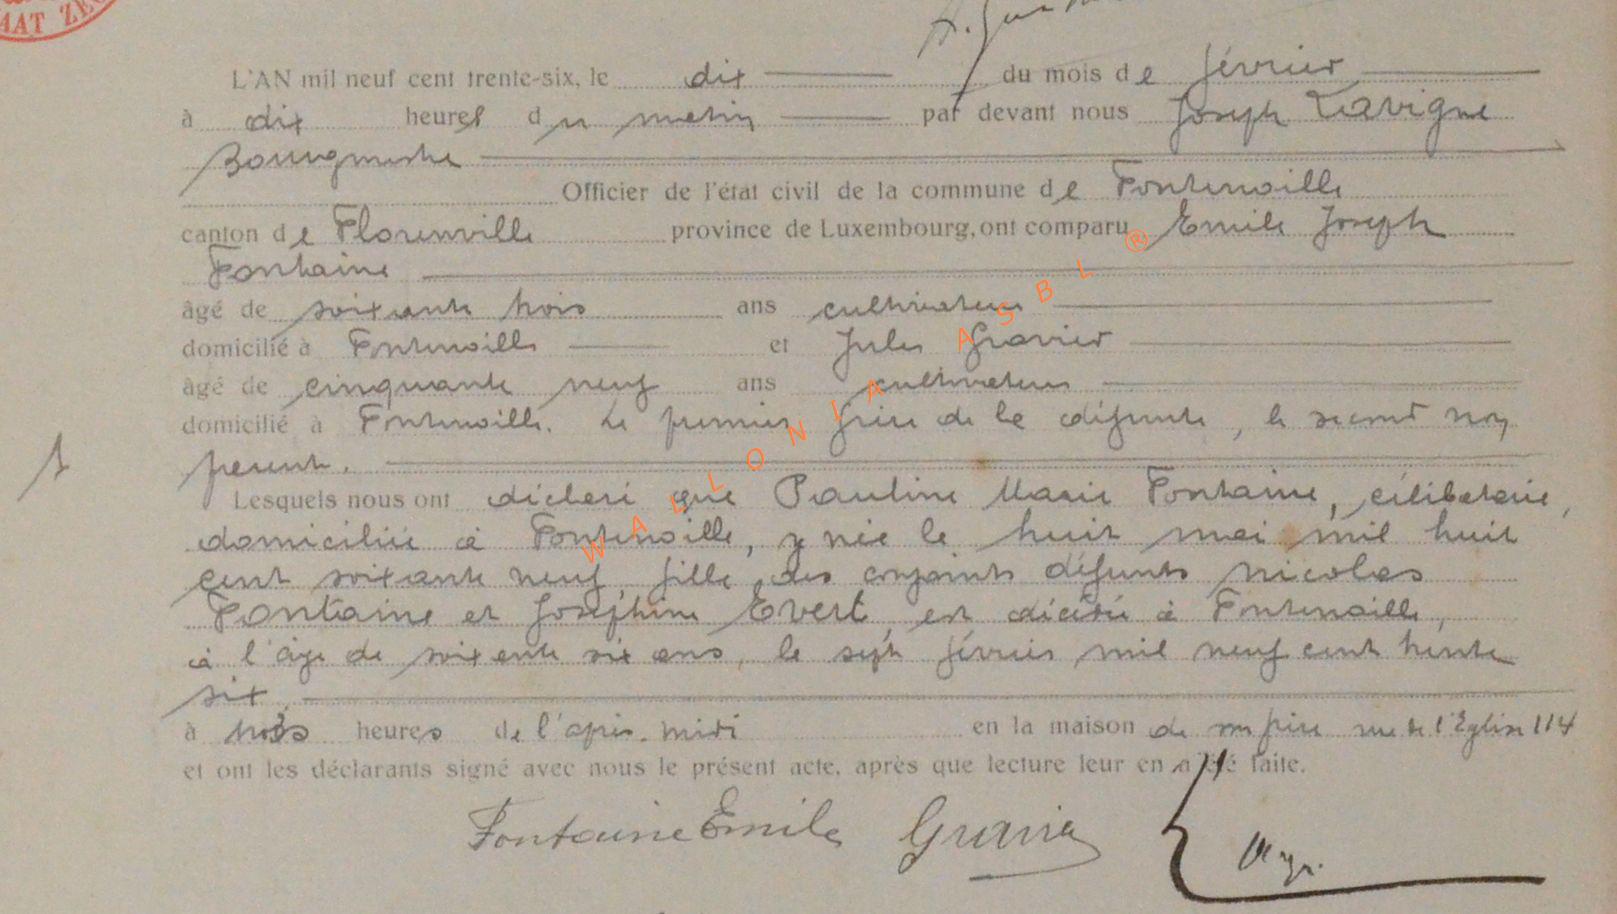 L'AN mil neuf cent trente-six, le dix du mois de février
à dix heures du matin par devant nous Joseph Lavigne
Bourgmestre
Officier de l'état civil de la commune de Fontenoille
canton de Florenville province de Luxembourg, ont comparu Emile Joseph
Fontaine
âgé de soixante trois ans cultivateur
domicilié à Fontenoille et Jules Gravier
âgé de cinquante neuf ans cultivateur
domicilié à Fontenoille. Le premier frère de la défunte, le second non
parent.
Lesquels nous ont déclaré que Pauline Marie Fontaine, célibataire,
domiciliée à Fontenoille, y née le huit mai mil huit
cent soixante neuf, fille des conjoints défunts Nicolas
Fontaine et Joséphine Evert, est décédée à Fontenoille,
à l'âge de soixante six ans, le sept février mil neuf cent trente
six.
à trois heures de l'après-midi en la maison de son frère rue de l'Eglise 114
et ont les déclarants signé avec nous le présent acte, après que lecture leur en a été faite.
Fontaine Emile Gravier
WALLONIA ASBL ®